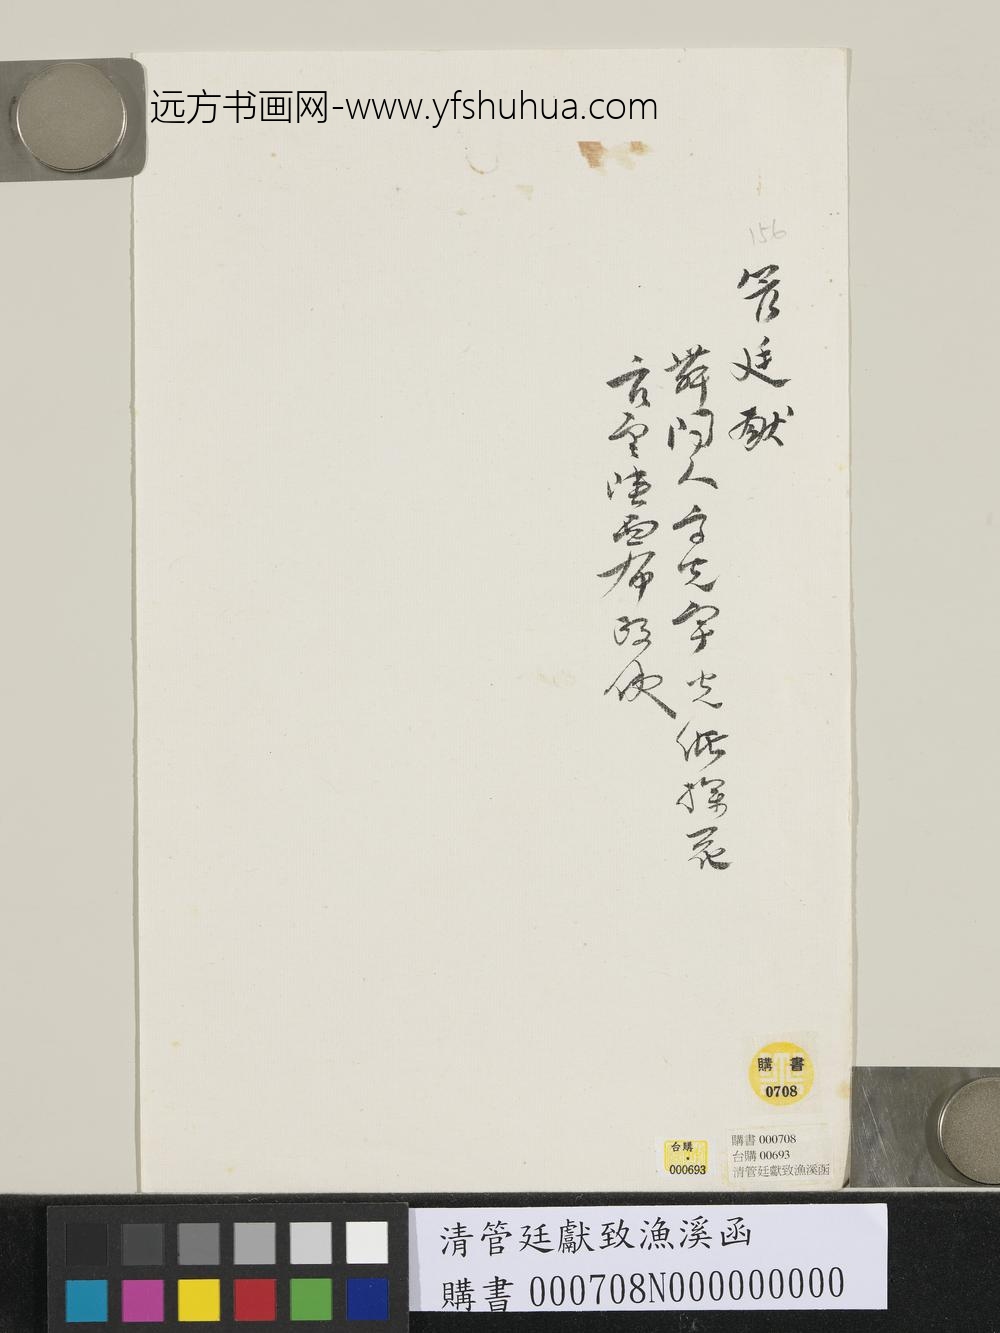 远方书画网-www.yfshuhua.com
156
管廷獻
門人 字 光 探花
布政使
購書
0708
台購
000693
購書 000708
台購 00693
清管廷獻致漁溪函
清管廷獻致漁溪函
購書 000708N000000000